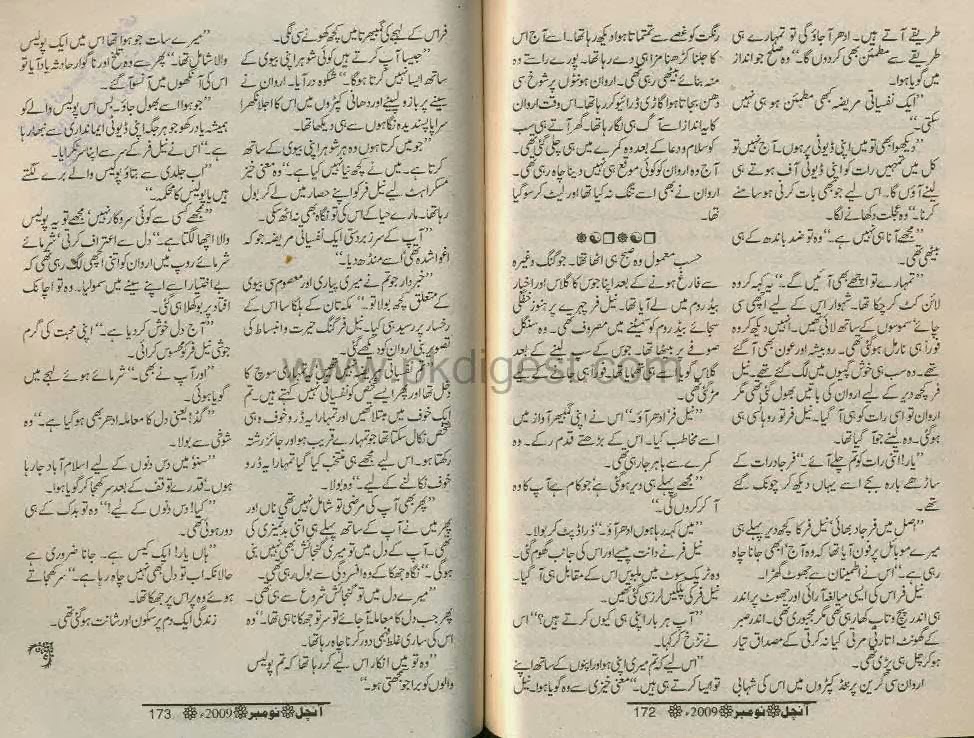 طریقے آتے ہیں۔ ادھر آجاؤ گی تو تمہارے ہی
طریقے سے مطمئن بھی کردوں گا۔“ وہ صلح جو انداز
میں گویا ہوا۔
”ایک نفسیاتی مریضہ کبھی مطمئن ہو ہی نہیں
سکتی۔“
”دیکھو ابھی تو میں اپنی ڈیوٹی پر ہوں۔ آج نہیں تو
کل میں تمہیں رات کو اپنی ڈیوٹی آف ہوتے ہی
لینے آؤں گا۔ اس لیے جو بھی بات کرنی ہو سامنے
کرنا۔“ وہ عجلت دکھانے لگا۔
”مجھے آنا ہی نہیں ہے۔“ وہ تو ضد باندھ کے ہی
بیٹھی تھی۔
”تمہارے تو اچھے بھی آئیں گے۔“ یہ کہہ کر وہ
لائن کٹ کرچکا تھا۔ شہوار اس کے لیے اچھی سی
چائے سموسوں کے ساتھ لائی تھیں۔ انہیں دیکھ کر وہ
فوراً ہی نارمل ہوگئی تھی۔ روبیشہ اور عون بھی آگئے
تھے۔ وہ سب ہی خوش گپیوں میں لگ گئے تھے۔ نیل
فر کچھ دیر کے لیے اروان کی باتیں بھول گئی تھی مگر
اروان تو اسی رات کو ہی آگیا۔ نیل فر تو روہانسی ہی
ہوگئی۔ وہ لینے جو آگیا تھا۔
”یار! اتنی رات کو تم چلے آئے۔“ فرجاد رات کے
ساڑھے بارہ بجے اسے یہاں دیکھ کر چونک گئے
تھے۔
”اصل میں فرجاد بھائی! نیل فر کا کچھ دیر پہلے ہی
میرے موبائل پر فون آیا تھا کہ وہ آج ابھی جانا چاہ
رہی ہے۔“ اس نے اطمینان سے جھوٹ گھڑا۔
نیل فر اس کی ایسی مبالغہ آرائی اور جھوٹ پر اندر
ہی اندر پیچ و تاب کھا رہی تھی مگر مجبوری تھی۔ اندر صبر
کے گھونٹ اتارتی مرتی کیا نہ کرتی کے مصداق تیار
ہوکر چل ہی پڑی تھی۔
اروان سی گرین پرنٹڈ کپڑوں میں اس کی شہابی
رنگت کو غصے سے تمتماتا ہوا دیکھ رہا تھا۔ اسے آج اس
کا جلنا کڑھنا مزا ہی دے رہا تھا۔ پورے راستے وہ
منہ بنائے بیٹھی رہی تھی۔ اروان ہونٹوں پر شوخ سی
دھن بجاتا ہوا گاڑی ڈرائیو کررہا تھا۔ اس وقت اروان
کا یہ انداز اسے آگ ہی لگا رہا تھا۔ گھر آتے ہی سب
کو سلام و دعا کے بعد وہ کمرے میں ہی چلی گئی تھی۔
آج وہ اروان کو کوئی موقع ہی نہیں دینا چاہ رہی تھی۔
اروان نے بھی اسے تنگ نہ کیا تھا اور لیٹ کر سوگیا
تھا
حسب معمول وہ صبح ہی اٹھا تھا۔ جوگنگ وغیرہ
سے فارغ ہونے کے بعد اپنا جوس کا گلاس اور اخبار
بیڈروم میں لے آیا تھا۔ نیل فر چہرے پر ہنوز خفگی
سجائے بیڈروم کو سمیٹنے میں مصروف تھی۔ وہ سنگل
صوفے پر بیٹھا تھا۔ جوس کے سپ لینے کے بعد
مڑ گئی تھی۔
”نیل فر! ادھر آؤ۔“ اس نے اپنی گمبھیر آواز میں
اسے مخاطب کیا۔ اس کے بڑھتے قدم رکے۔ وہ
کمرے سے باہر جارہی تھی۔
”مجھے پہلے ہی دیر ہوگئی ہے جو کام ہے آپ کا وہ
آکر کروں گی۔“
”میں کہہ رہا ہوں ادھر آؤ۔“ ذرا ڈپٹ کر بولا۔
نیل فر نے دانت پیسے اور اس کی جانب گھوم گئی۔
وہ ٹریک سوٹ میں ملبوس اس کے مقابل ہی آگیا۔
نیل فر کی پلکیں لرز سی گئی تھیں۔
”آپ ہر بار اپنی ہی کیوں کرتے ہیں؟“ اس
نے تڑخ کر کہا۔
”اس لیے کہ تم میری اپنی ہو اور اپنوں کے ساتھ اپنے
تو ایسا کرتے ہی ہیں۔“ معنی خیزی سے وہ گویا ہوا۔ نیل
آنچل نومبر 2009ء 172
فر اس کے لہجے کی گمبھیرتا میں کچھ کھونے سی لگی۔
”جیسا آپ کرتے ہیں کوئی شوہر اپنی بیوی کے
ساتھ ایسا نہیں کرتا ہوگا۔“ شکوہ در آیا۔ اروان نے
سینے پر بازو لپیٹے اور دھانی کپڑوں میں اس کا اجلا نکھرا
سراپا پسندیدہ نگاہوں سے ہی دیکھا تھا۔
”جو میں کرتا ہوں وہ ہر شوہر اپنی بیوی کے ساتھ
کرتا ہے۔ میں نے کچھ نیا نہیں کیا ہے۔“ وہ معنی خیز
مسکراہٹ لیے نیل فر کو اپنے حصار میں لے کر بول
رہا تھا۔ مارے حیا کے اس کی تو نگاہ بھی نہ اٹھ سکی۔
”آپ کے سر زبردستی ایک نفسیاتی مریضہ جو کہ
اغوا شدہ تھی اسے منڈھ دیا۔“
”خبردار جو تم نے میری پیاری اور معصوم سی بیوی
کے متعلق کچھ بولا تو۔“ یکدم اس کے ہلکا سا اس کے
رخسار پر رسید ہی کیا۔ نیل فر گنگ حیرت و انبساط کی
تصویر بنی اروان کو دیکھے گئی۔
دخل تھا اور پھر ایسے شخص کو نفسیاتی نہیں کہتے ہیں۔ تم
ایک خوف میں مبتلا تھیں اور تمہارا یہ ڈر و خوف وہی
شخص نکال سکتا تھا جو تمہارے قریب ہو اور جائز رشتہ
رکھتا ہو۔ اس لیے مجھے ہی منتخب کیا گیا تمہارا یہ ڈر و
خوف نکالنے کے لیے۔“ وہ بولا۔
”پھر بھی آپ کی مرضی تو شامل نہیں تھی ناں اور
پھر میں نے آپ کے ساتھ پہلے ہی اتنی بدتمیزی کی
تھی۔ آپ کے دل میں تو میری گنجائش بھی نہیں بنی
ہوگی۔“ نگاہ جھکا کے وہ افسردگی سے بول رہی تھی۔
”میرے دل میں تو گنجائش شروع سے ہی تھی۔
پھر جب دل کا معاملہ آجائے تو سر تو جھکانا ہی تھا۔“ وہ
اس کی ساری غلط فہمی دور کرنا چاہ رہا تھا۔
”وہ تو میں انکار اس لیے کررہا تھا کہ تم پولیس
والوں کو برا جو سمجھتی ہو۔“
”میرے سات جو ہوا تھا اس میں ایک پولیس
والا شامل تھا۔“ پھر سے وہ تلخ اور ناگوار حادثہ یاد آیا تو
اس کی آنکھوں میں آنسو آگئے۔
”جو ہوا اسے بھول جاؤ۔ بس اس پولیس والے کو
ہمیشہ یاد رکھو جو ہر جگہ اپنی ڈیوٹی ایمانداری سے نبھا رہا
ہے۔“ اس نے نیل فر کے سر سے اپنا سر ٹکرایا۔
”اب جلدی سے بتاؤ پولیس والے برے لگتے
ہیں یا پولیس کا محکمہ۔“
”مجھے کسی سے کوئی سروکار نہیں‘ مجھے تو یہ پولیس
والا اچھا لگتا ہے۔“ دل سے اعتراف کرتی‘ شرمائے
شرمائے روپ میں اروان کو اتنی اچھی لگ رہی تھی کہ
بے اختیار اسے اپنے سینے میں سمولیا۔ وہ تو اچانک
افتاد پر بوکھلا ہی گئی۔
”آج دل خوش کردیا ہے۔“ اپنی محبت کی گرم
جوشی نیل فر کو محسوس کرائی۔
”اور آپ نے بھی۔“ شرمائے ہوئے لہجے میں
گویا ہوئی۔
”گڈ! یعنی دل کا معاملہ ادھر بھی ہوگیا ہے۔“ وہ
شوخی سے بولا۔
”سنو! میں دس دنوں کے لیے اسلام آباد جارہا
ہوں۔“ قدرے توقف کے بعد سر کھجا کر گویا ہوا۔
”کیا! دس دنوں کے لیے!“ وہ تو بدک کے ہی
دور ہوئی تھی۔
”ہاں یار! ایک کیس ہے۔ جانا ضروری ہے
حالانکہ اب تو دل بھی نہیں چاہ رہا ہے۔“ سر کھجاتے
ہوئے وہ پر اس پر جھکا تھا۔
زندگی ایک دم پرسکون اور شانت ہوگئی تھی۔
آنچل نومبر 2009ء 173
www.pkdigest.com